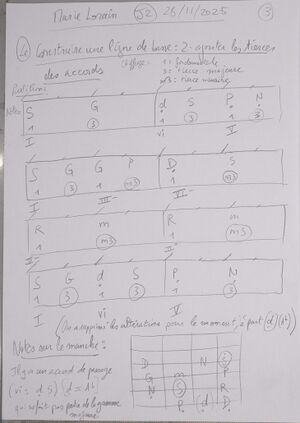 Marie Lorrain (J2) 26/11/2025 (3)
(4) Construire une ligne de basse : 2 - ajouter les tierces
des accords
Chiffres : 1 : fondamentale
3 : tierce majeure
m3 : tierce mineure
Partition :
Notes
S G d S P N
1 (3) 1 (3) 1 (3)
I vi V
S G G P D S
1 (3) 1 (m3) 1 (m3)
I III-
R m R m
1 (m3) 1 (m3)
II-
S G d S P N
1 (3) 1 (3) 1 (3)
I vi V
(On a supprimé les altérations pour le moment, à part (d) (1b))
Notes sur le manche :
Il y a un accord de passage
(vi = d S) (d = 1b)
qui ne fait pas partie de la gamme
majeure
D N (S)
G m P
N (S) R
P (d) D